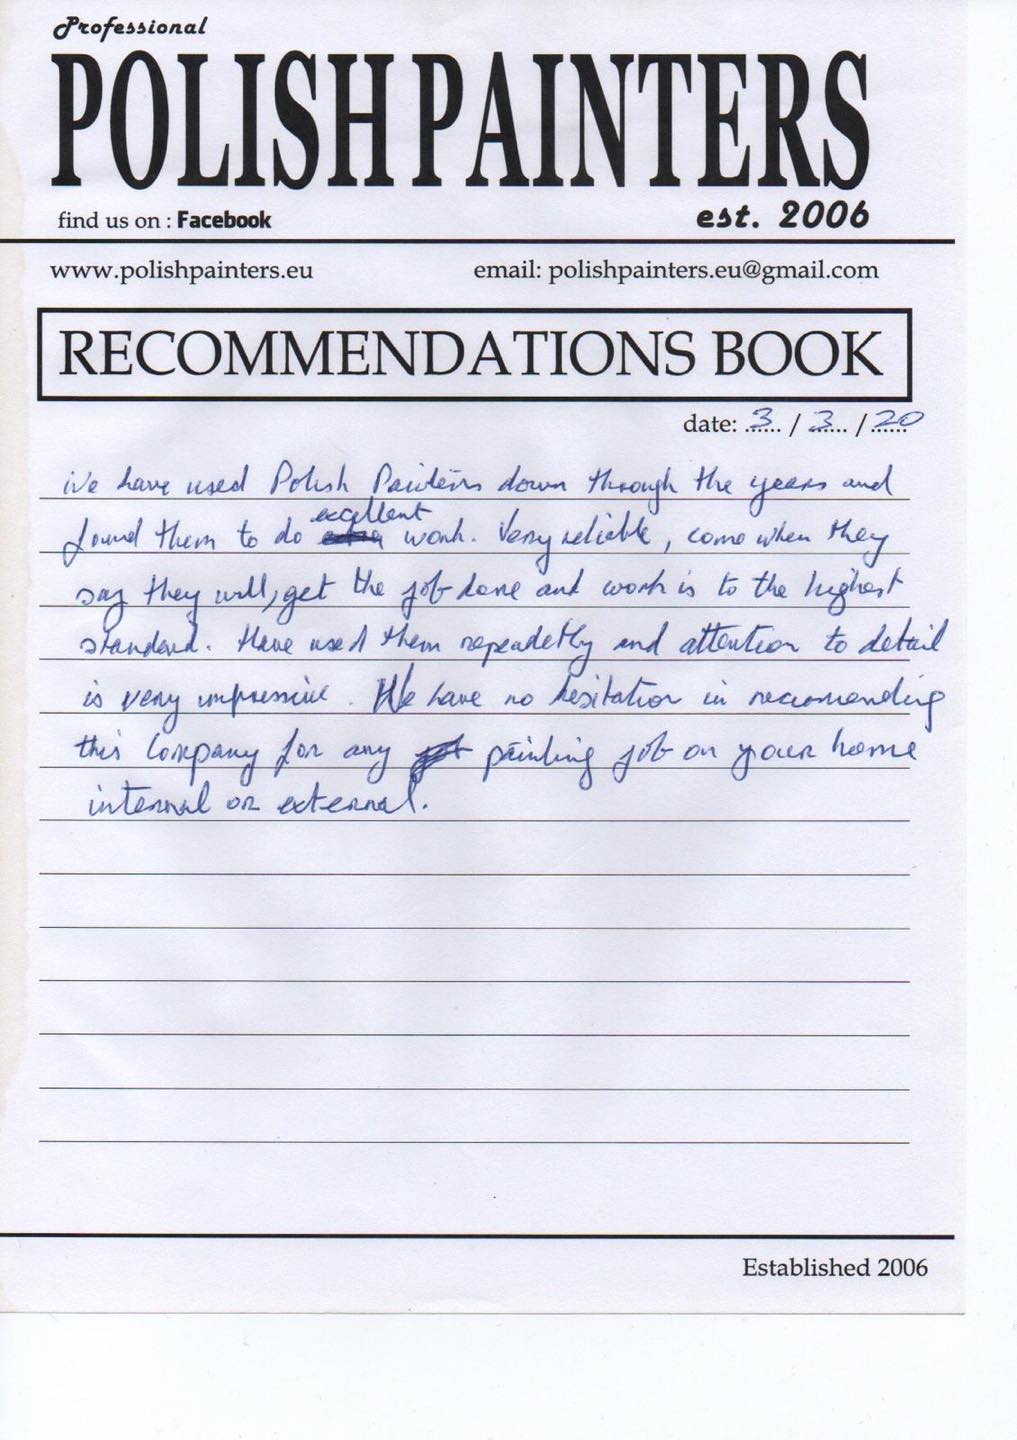 Professional
POLISH PAINTERS
find us on : Facebook
est. 2006
www.polishpainters.eu
email: polishpainters.eu@gmail.com
RECOMMENDATIONS BOOK
date: 3 / 3 / 20
We have used Polish Painters down through the years and
found them to do excellent work. Very reliable, come when they
say they will, get the job done and work is to the highest
standard. Have used them repeadetly and attention to detail
is very impressive. We have no hesitation in recomending
this Company for any painting job on your home
internal or external.
Established 2006